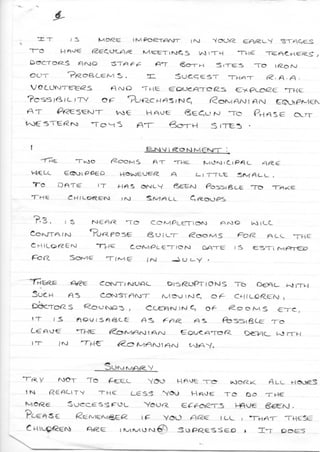 6
IT IS MORE IMPORTANT IN YOUR EARLY STAGES
TO HAVE REGULAR MEETINGS WITH THE TEACHERS,
DOCTORS AND STAFF AT BOTH SITES TO IRON
OUT PROBLEMS. I SUGGEST THAT R.A.A.
VOLUNTEERS AND THE EDUCATORS EXPLORE THE
POSSIBILITY OF PURCHASING ROMANIAN EQUIPMEN
AT PRESENT WE HAVE BEGUN TO PHASE OUT
WESTERN TOYS AT BOTH SITES.
ENVIRONMENT:
THE TWO ROOMS AT THE MUNICIPAL ARE
WELL EQUIPPED HOWEVER A LITTLE SMALL.
TO DATE IT HAS ONLY BEEN POSSIBLE TO TAKE
THE CHILDREN IN SMALL GROUPS.
P.3. IS NEAR TO COMPLETION AND WILL
CONTAIN PURPOSE BUILT ROOMS FOR ALL THE
CHILDREN THE COMPLETION DATE IS ESTIMATED
FOR SOME TIME IN JULY.
THERE ARE CONTINUAL DISRUPTIONS TO DEAL WITH
SUCH AS CONSTANT MOVING OF CHILDREN,
DOCTORS ROUNDS, CLEANING OF ROOMS ETC,
IT IS ADVISABLE AS FAR AS POSSIBLE TO
LEAVE THE ROMANIAN EDUCATOR DEAL WITH
IT IN THE ROMANIAN WAY.
SUMMARY
TRY NOT TO FEEL YOU HAVE TO WORK ALL HOURS
IN REALITY THE LESS YOU HAVE TO DO THE
MORE SUCCESSFUL YOUR EFFORTS HAVE BEEN.
PLEASE REMEMBER IF YOU ARE ILL, THAT THESE
CHILDREN ARE IMMUNE SUPRESSED, IT DOES